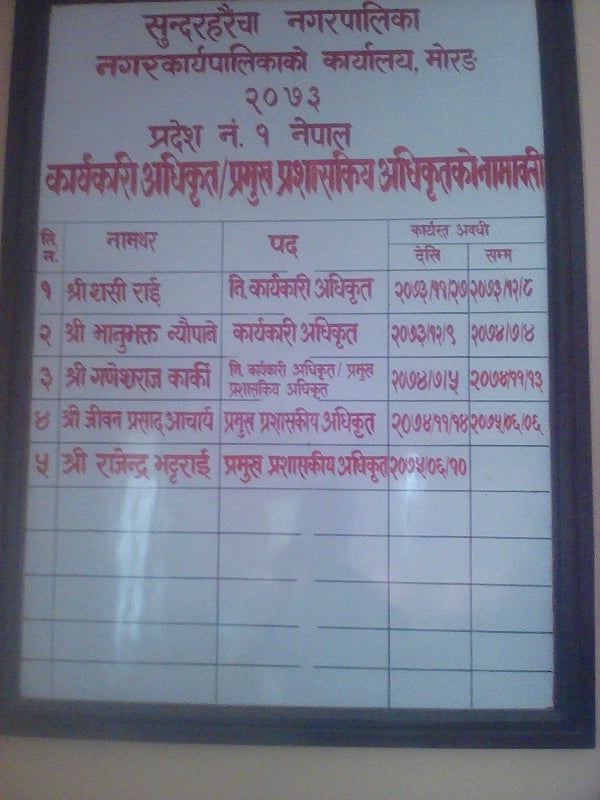 सुन्दरहरैंचा नगरपालिका
नगरकार्यपालिकाको कार्यालय, मोरङ
२०७३
प्रदेश नं. १ नेपाल
कार्यकारी अधिकृत/प्रमुख प्रशासकिय अधिकृतको नामावली
सि. न. नामथर पद कार्यरत अवधी
देखि सम्म
१ श्री शसी राई नि. कार्यकारी अधिकृत २०७३/११/२७ २०७३/१२/८
२ श्री भानुभक्त न्यौपाने कार्यकारी अधिकृत २०७३/१२/९ २०७४/७/४
३ श्री गणेशराज कार्की नि. कार्यकारी अधिकृत/ प्रमुख
प्रशासकिय अधिकृत २०७४/७/५ २०७४/११/१३
४ श्री जीवन प्रसाद आचार्य प्रमुख प्रशासकीय अधिकृत २०७४/११/१४ २०७५/०६/०६
५ श्री राजेन्द्र भट्टराई प्रमुख प्रशासकीय अधिकृत २०७५/०६/१०